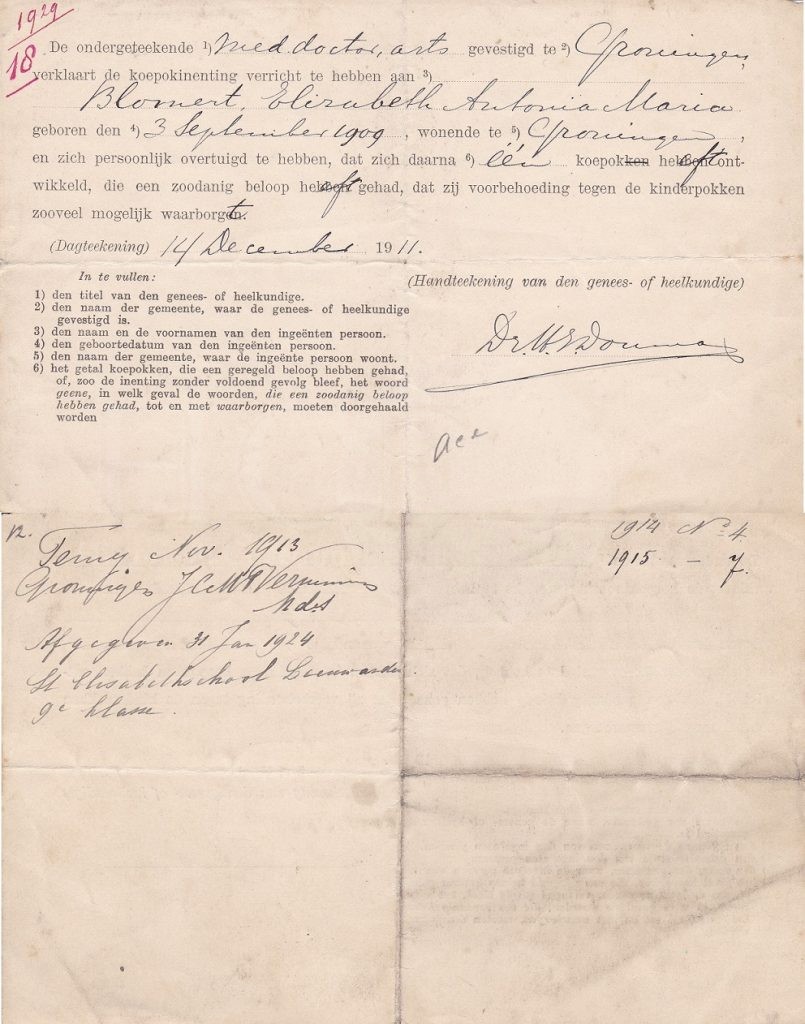 1929
18
De ondergeteekende 1) Med. doctor, arts gevestigd te 2) Groningen,
verklaart de koepokinenting verricht te hebben aan 3)
Blomert, Elizabeth Antonia Maria
geboren den 4) 3 September 1909, wonende te 5) Groningen,
en zich persoonlijk overtuigd te hebben, dat zich daarna 6) één koepokken hebben eft ont-
wikkeld, die een zoodanig beloop hebben eft gehad, dat zij voorbehoeding tegen de kinderpokken
zooveel mogelijk waarborgen t.
(Dagteekening) 14 December 1911.
In te vullen:
1) den titel van den genees- of heelkundige.
2) den naam der gemeente, waar de genees- of heelkundige
gevestigd is.
3) den naam en de voornamen van den ingeënten persoon.
4) den geboortedatum van den ingeënten persoon.
5) den naam der gemeente, waar de ingeënte persoon woont.
6) het getal koepokken, die een geregeld beloop hebben gehad,
of, zoo de inenting zonder voldoend gevolg bleef, het woord
geene, in welk geval de woorden, die een zoodanig beloop
hebben gehad, tot en met waarborgen, moeten doorgehaald
worden
(Handteekening van den genees- of heelkundige)
Dr. Douma
Terug Nov. 1913
Groningen
Afgegeven 31 Jan 1924
St Elisabethschool Leeuwarden
9e klasse.
1914 No 4.
1915 - 7.